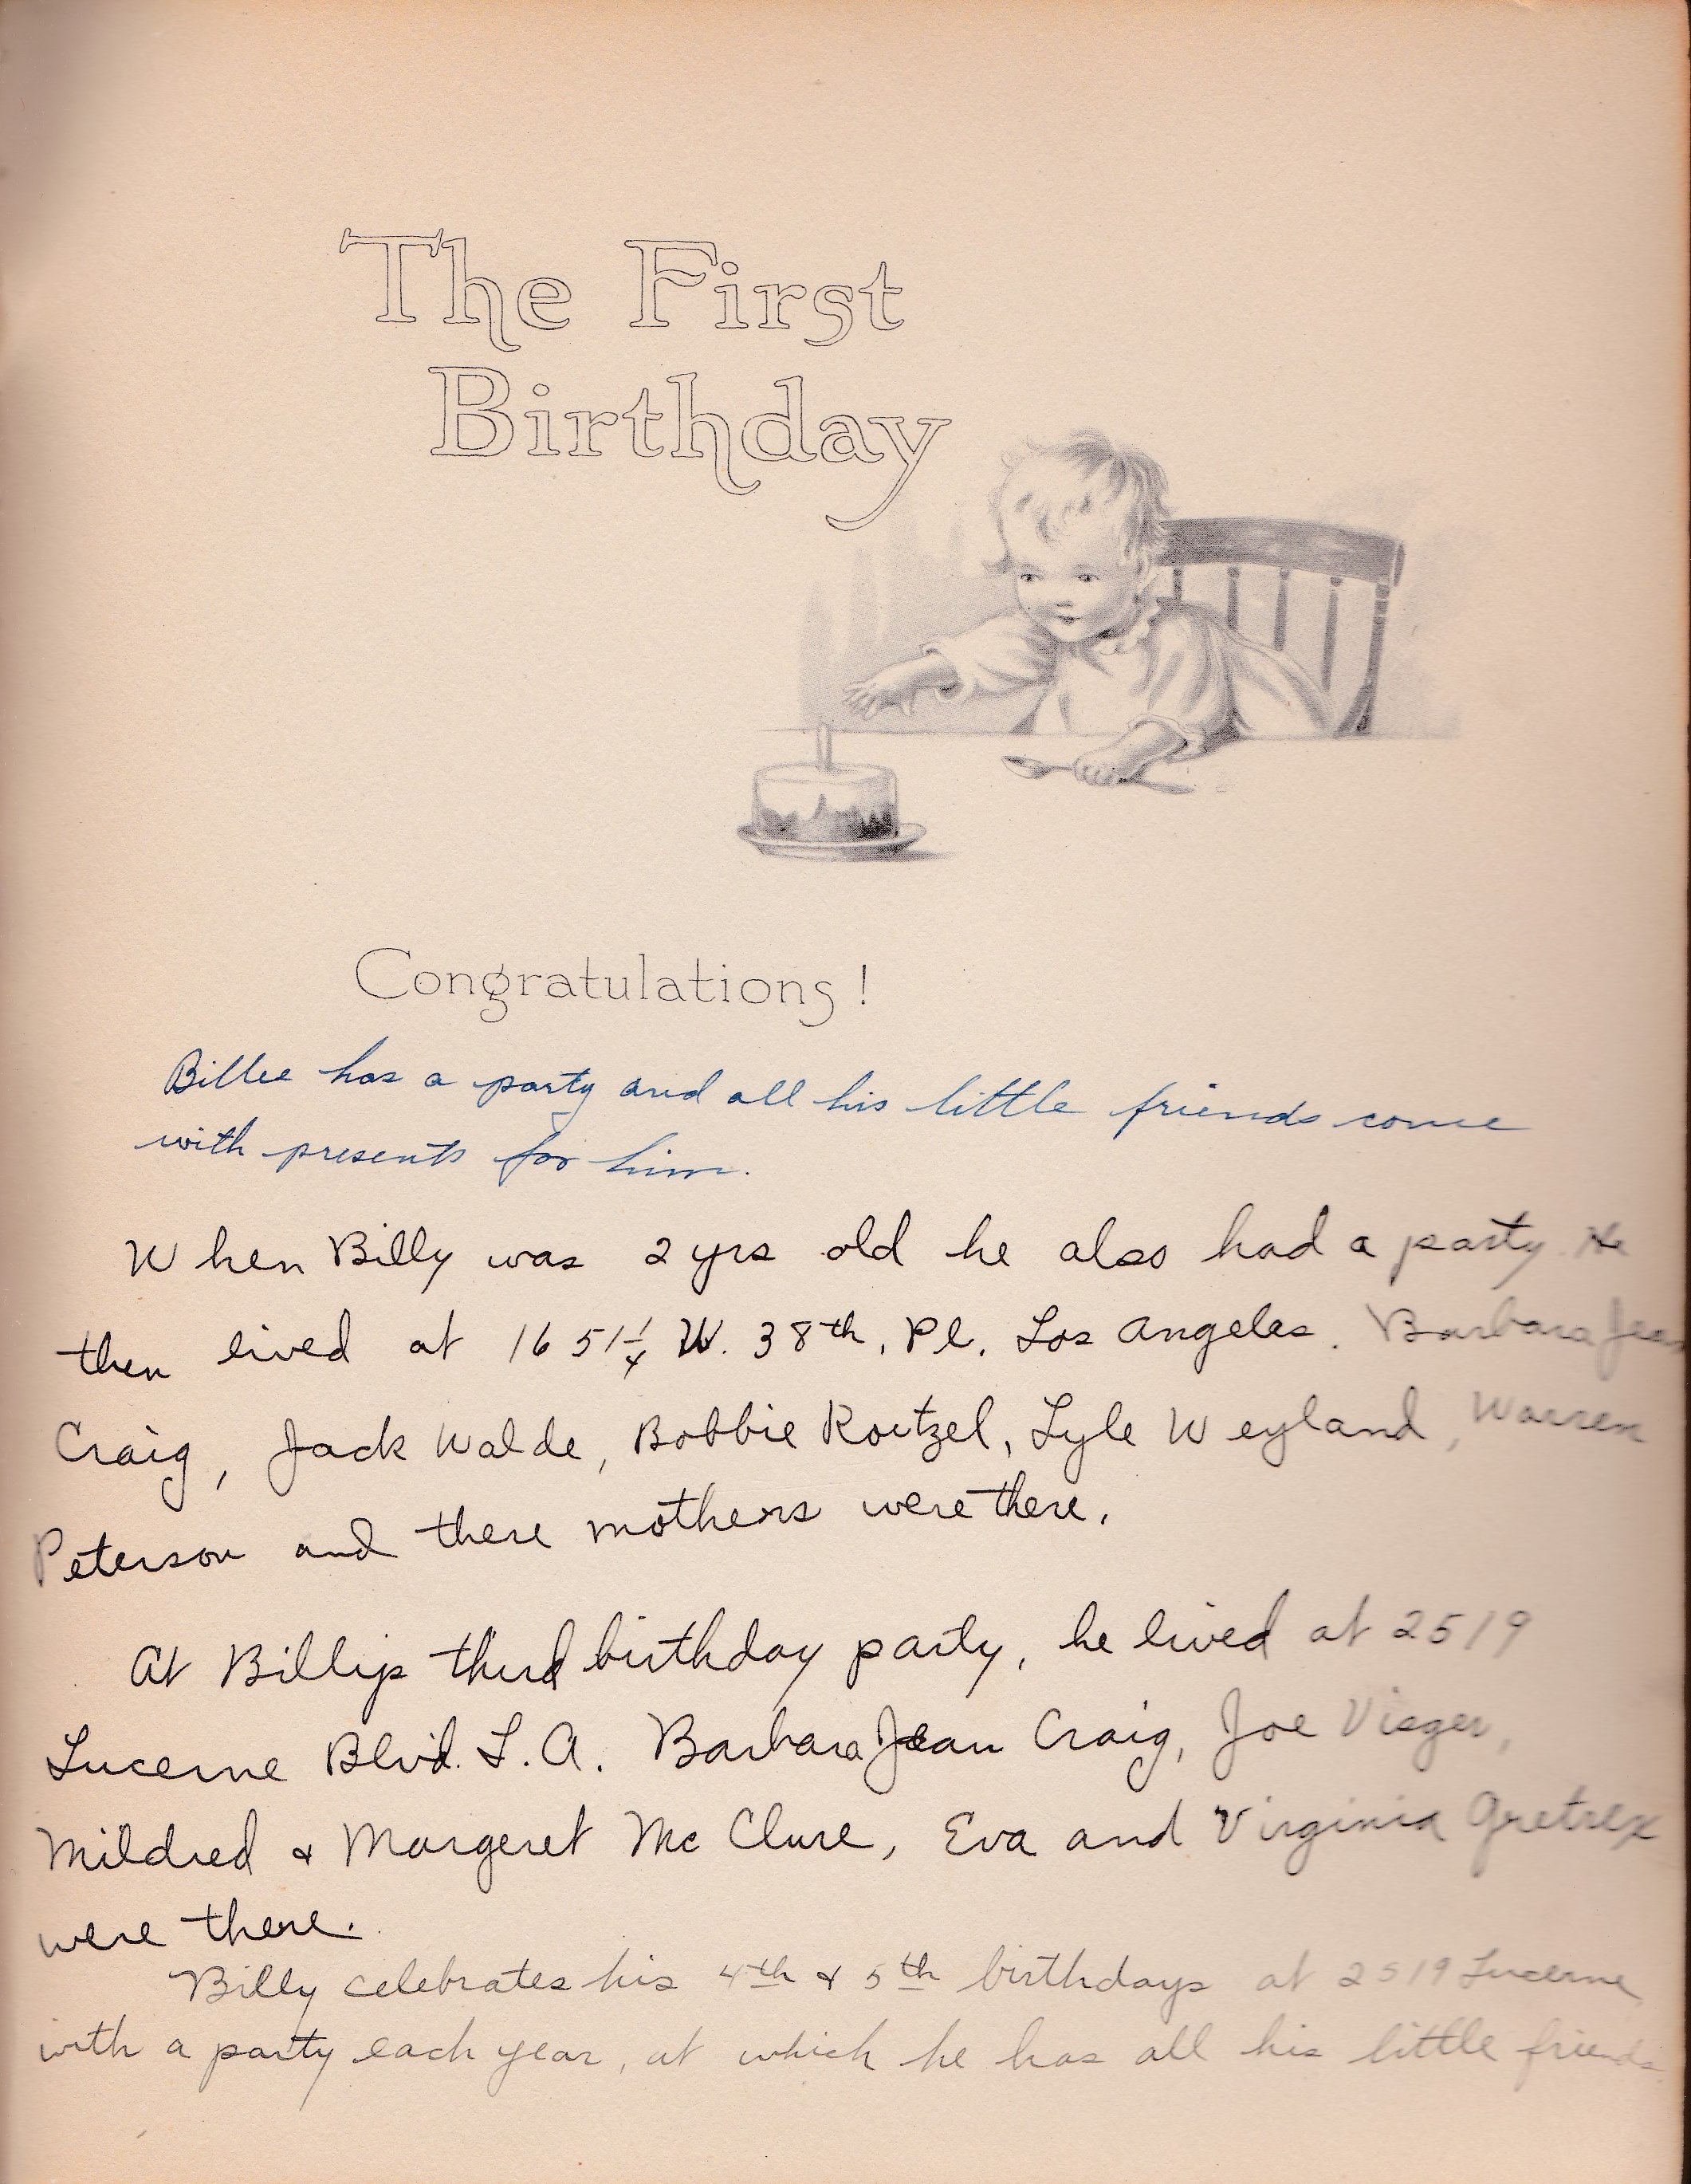 The First
Birthday
Congratulations!
Billee has a party and all his little friends come
with presents for him.
When Billy was 2 yrs old he also had a party He
then lived at 1651 1/4 W. 38th, Pl. Los Angeles. Barbara Jean
Craig, Jack Walde, Bobbie Koetzel, Lyle Weyland, Warren
Peterson and there mothers were there.
At Billys third birthday party, he lived at 2519
Lucerne Blvd. L.A. Barbara Jean Craig, Joe Visger,
Mildred & Margeret McClure, Eva and Virginia Gretrex
were there.
Billy celebrates his 4th & 5th birthdays at 2519 Lucerne,
with a party each year, at which he has all his little friends